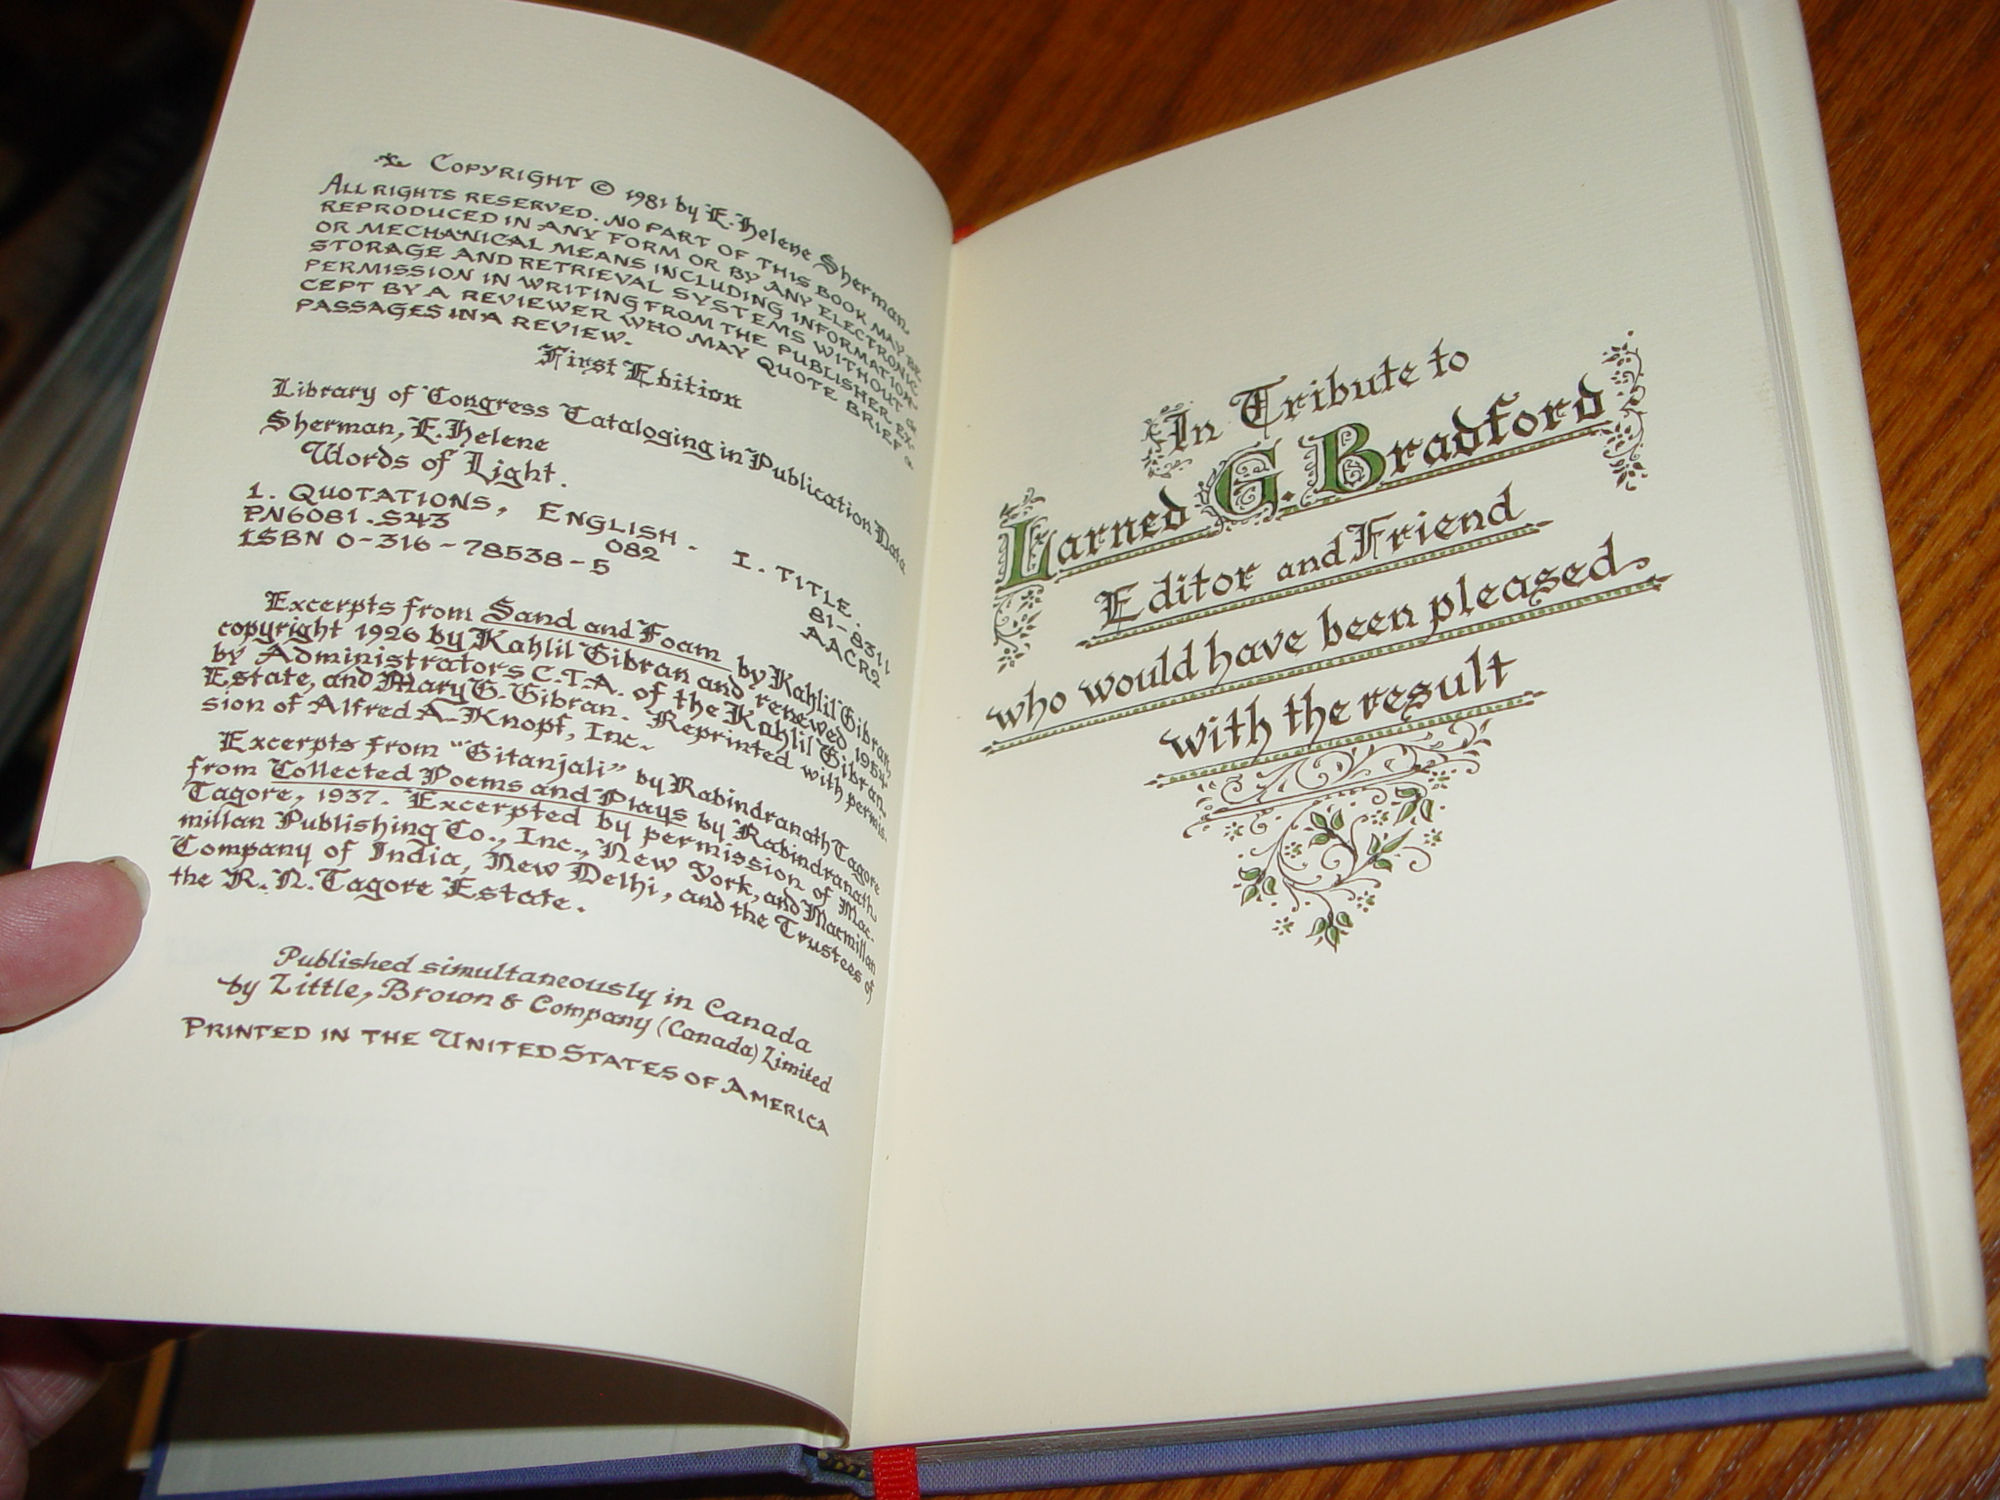 Copyright © 1981 by E. Helene Sherman.
All rights reserved. No part of this book may be
reproduced in any form or by any electronic
or mechanical means including information
storage and retrieval systems without
permission in writing from the publisher, ex-
cept by a reviewer who may quote brief
passages in a review.
First Edition
Library of Congress Cataloging in Publication Data
Sherman, E. Helene
Words of Light.
1. Quotations, English. I. Title.
PN6081.S43 082 81-8311
ISBN 0-316-78538-5 AACR2
Excerpts from Sand and Foam by Kahlil Gibran,
copyright 1926 by Kahlil Gibran and renewed 1954
by Administrators C.T.A. of the Kahlil Gibran
Estate, and Mary G. Gibran. Reprinted with permis-
sion of Alfred A. Knopf, Inc.
Excerpts from "Gitanjali" by Rabindranath Tagore
from Collected Poems and Plays by Rabindranath
Tagore, 1937. Excerpted by permission of Mac-
millan Publishing Co., Inc., New York, and Macmillan
Company of India, New Delhi, and the Trustees of
the R. N. Tagore Estate.
Published simultaneously in Canada
by Little, Brown & Company (Canada) Limited
Printed in the United States of America
In Tribute to
Larned G. Bradford
Editor and Friend
who would have been pleased
with the result